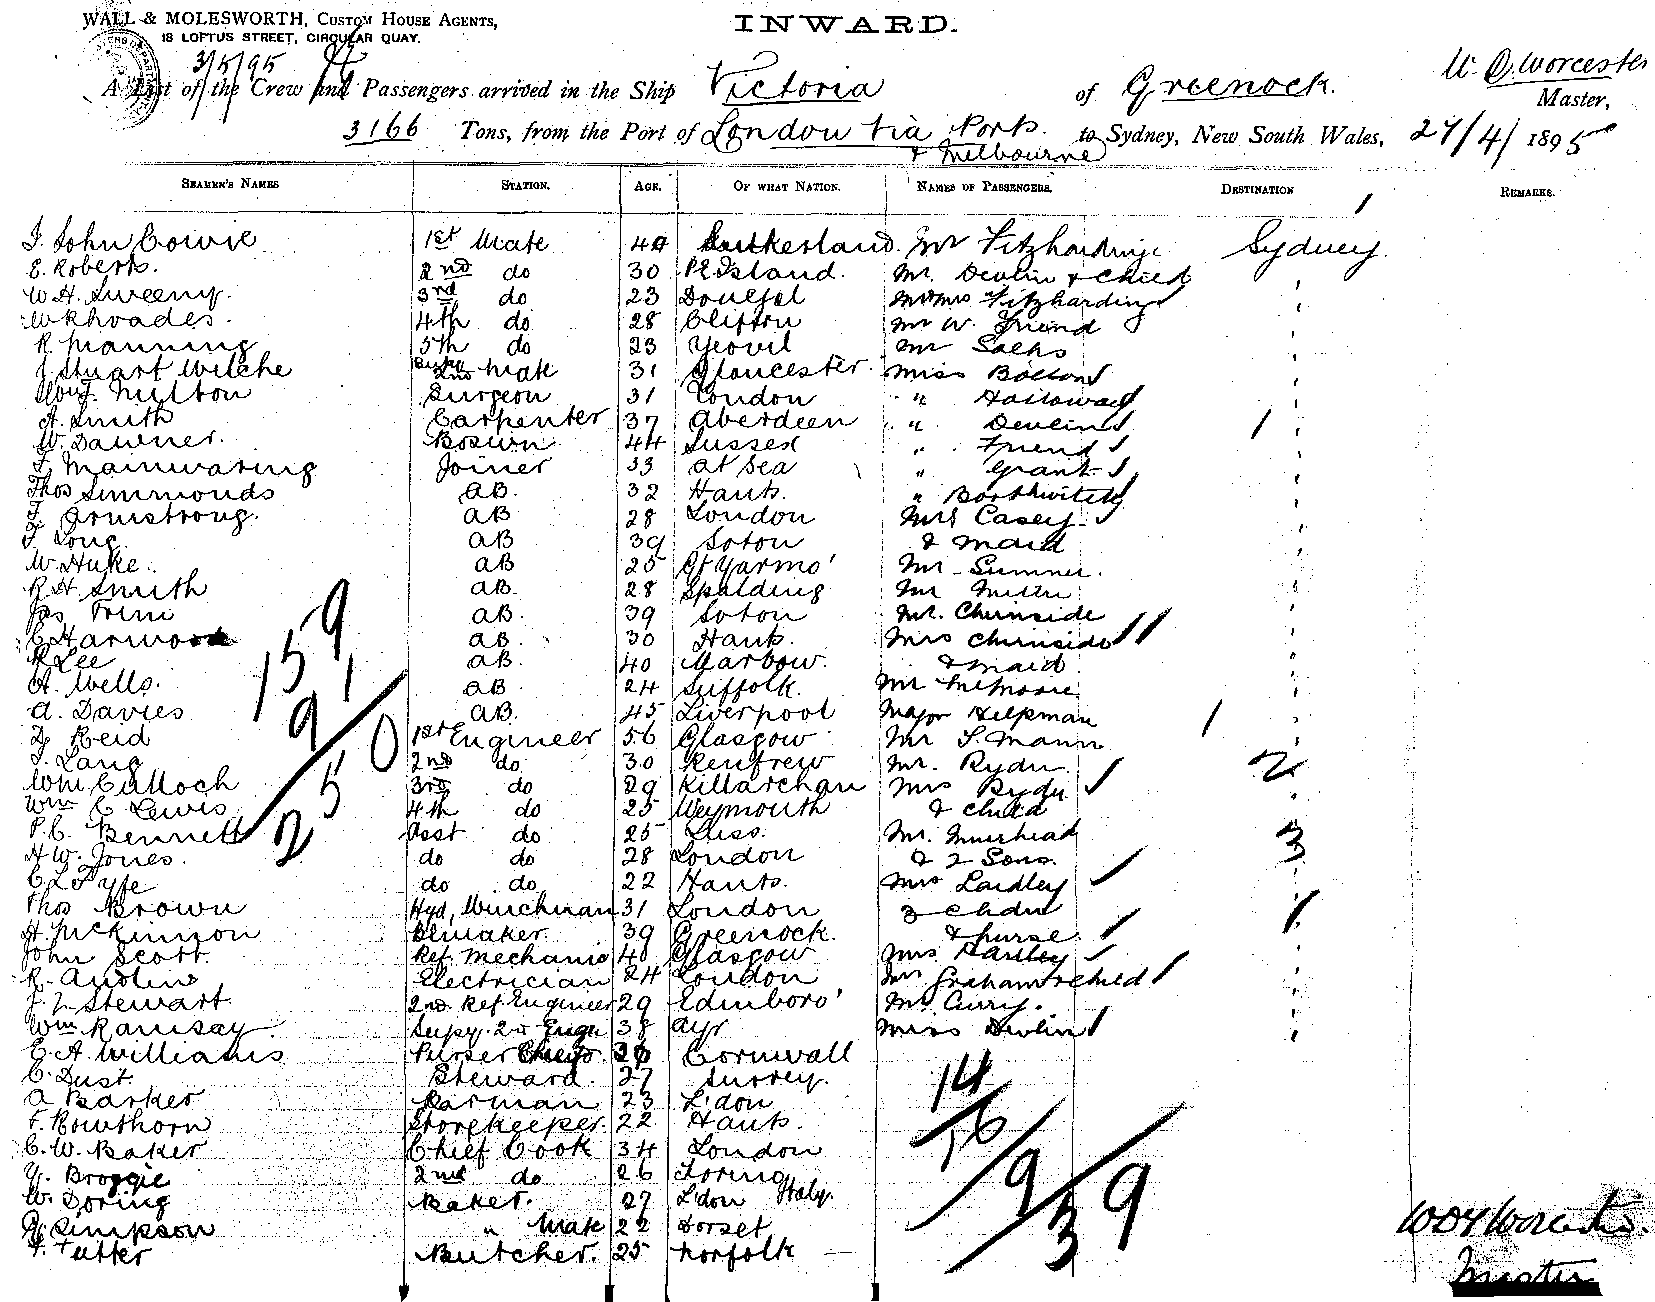 WALL & MOLESWORTH, CUSTOM HOUSE AGENTS,
INWARD.
18 LOFTUS STREET, CIRCULAR QUAY.
3/5/95
W. Worcester
A List of the Crew and Passengers arrived in the Ship Victoria of Greenock. Master,
3166 Tons, from the Port of London via Ports & Melbourne to Sydney, New South Wales, 27/4/1895
SEAMEN'S NAMES STATION. AGE. OF WHAT NATION. NAMES OF PASSENGERS. DESTINATION REMARKS.
John Cowie 1st Mate Mr Fitzhardinge Sydney
E. Roberts. 2nd do 30 P E Island. Mr. Devlin & Child
W. H. Sweeny. 3rd do 23 Donegal Fitzhardinge
4th do 28 Clifton Mr W. Friend
R. Manning 5th do 23 Yeovil Mr Sachs
J. Stuart Wilche 2nd Mate 31 Gloucester. Miss Bolton
Milton Surgeon 31 London " Hallowad
A. Smith Carpenter 37 Aberdeen " Devlin 1
W. Dawner. Boswn 44 Sussex " Friend
F. Mainwaring Joiner 33 at Sea " Grant
Thos Simmonds AB. 32 Hants. " Borthwick
F. Armstrong. AB 28 London Mrs Casey
F. Long AB 39 Soton & maid
W. Huke. AB 25 Gt Yarmo' Mr Sumner.
R H Smith AB. 28 Spalding Mr
Jas AB. 39 Soton Mr. Chirnside
C. Harwood AB. 30 Hants. Mrs Chirnside
R. Lee AB. 40 & maid
A. Wells. AB 24 Suffolk. Mr
A. Davies AB. 45 Liverpool Major Helpman 1
Reid 1st Engineer 56 Glasgow Mr Mann
Lang 2nd do 30 Renfrew Mr. Ryder 2
Wm Culloch 3rd do 29 Killarchan Mrs Ryder
Wm C Lewis 4th do 25 Weymouth & child
P. C. Bennett Asst do 25 Liss. Mr. Muirhead 3
H W. Jones. do do 28 London & 2 Sons.
C L Fyfe do do 22 Hants. Mrs Laidley
Thos Brown Hyd, Winchman 31 London 3 Chdn 1
A McKinnon Blmaker. 39 Greenock. & nurse
John Scott. Ref. Mechanic 40 Glasgow Mrs Hartley
R. Electrician 24 London Graham & child
J. Stewart 2nd Ref Engineer 29 Edinboro' Mr Curry.
Wm Ramsay Supy. 2nd Engr 38 Ayr Miss Devlin
E. A. Williams Purser Cornwall
C. Dust. Steward. 27 Surrey. 14
A Barker Barman 23 L'don
F. Rowthorn Storekeeper. 22 Hants. 16
C. W. Baker Chief Cook 34 London
Broggie 2nd do 26 Torino Italy.
W. Doring Baker. 27 L'don
Simpson " Mate 22 Dorset
F. Tutter Butcher. 25 Norfolk
159
91
250
9
39
Worcester.
Master